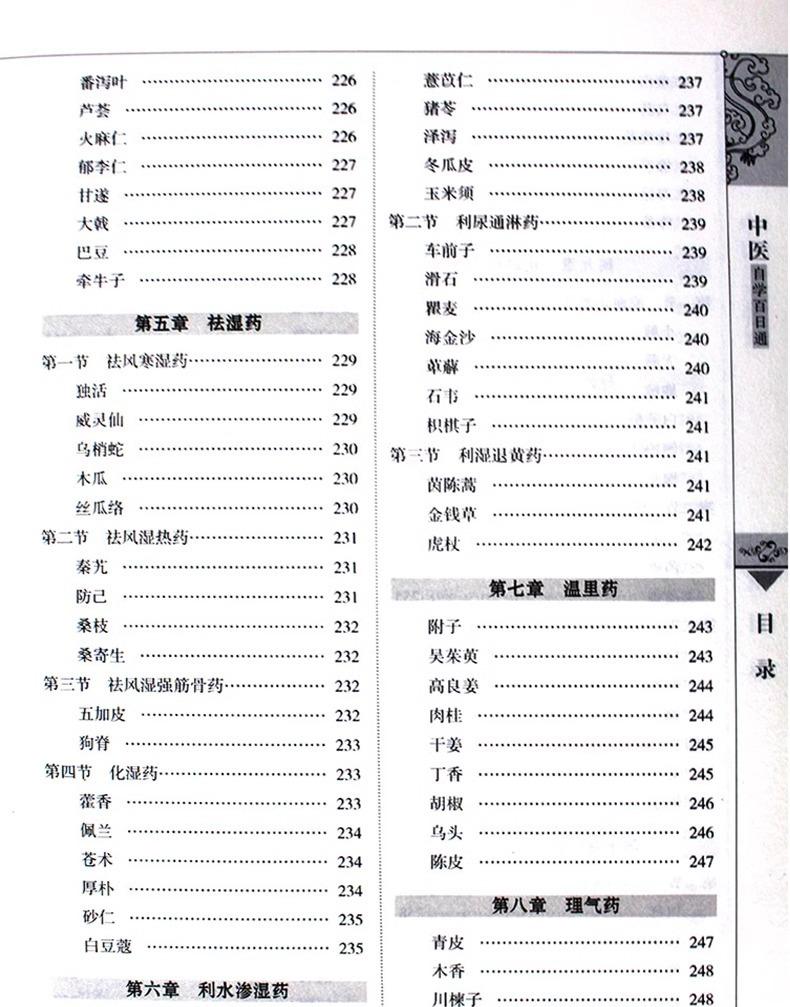 番泻叶 …………………………… 226
芦荟 …………………………… 226
火麻仁 …………………………… 226
郁李仁 …………………………… 227
甘遂 …………………………… 227
大戟 …………………………… 227
巴豆 …………………………… 228
牵牛子 …………………………… 228
第五章 祛湿药
第一节 祛风寒湿药…………………… 229
独活 …………………………… 229
威灵仙 …………………………… 229
乌梢蛇 …………………………… 230
木瓜 …………………………… 230
丝瓜络 …………………………… 230
第二节 祛风湿热药…………………… 231
秦艽 …………………………… 231
防己 …………………………… 231
桑枝 …………………………… 232
桑寄生 …………………………… 232
第三节 祛风湿强筋骨药……………… 232
五加皮 …………………………… 232
狗脊 …………………………… 233
第四节 化湿药………………………… 233
藿香 …………………………… 233
佩兰 …………………………… 234
苍术 …………………………… 234
厚朴 …………………………… 234
砂仁 …………………………… 235
白豆蔻 …………………………… 235
第六章 利水渗湿药
薏苡仁 …………………………… 237
猪苓 …………………………… 237
泽泻 …………………………… 237
冬瓜皮 …………………………… 238
玉米须 …………………………… 238
第二节 利尿通淋药…………………… 239
车前子 …………………………… 239
滑石 …………………………… 239
瞿麦 …………………………… 240
海金沙 …………………………… 240
萆薢 …………………………… 240
石韦 …………………………… 241
枳椇子 …………………………… 241
第三节 利湿退黄药…………………… 241
茵陈蒿 …………………………… 241
金钱草 …………………………… 241
虎杖 …………………………… 242
第七章 温里药
附子 …………………………… 243
吴茱萸 …………………………… 243
高良姜 …………………………… 244
肉桂 …………………………… 244
干姜 …………………………… 245
丁香 …………………………… 245
胡椒 …………………………… 246
乌头 …………………………… 246
陈皮 …………………………… 247
第八章 理气药
青皮 …………………………… 247
木香 …………………………… 248
川楝子 …………………………… 248
中医自学百日通
目录